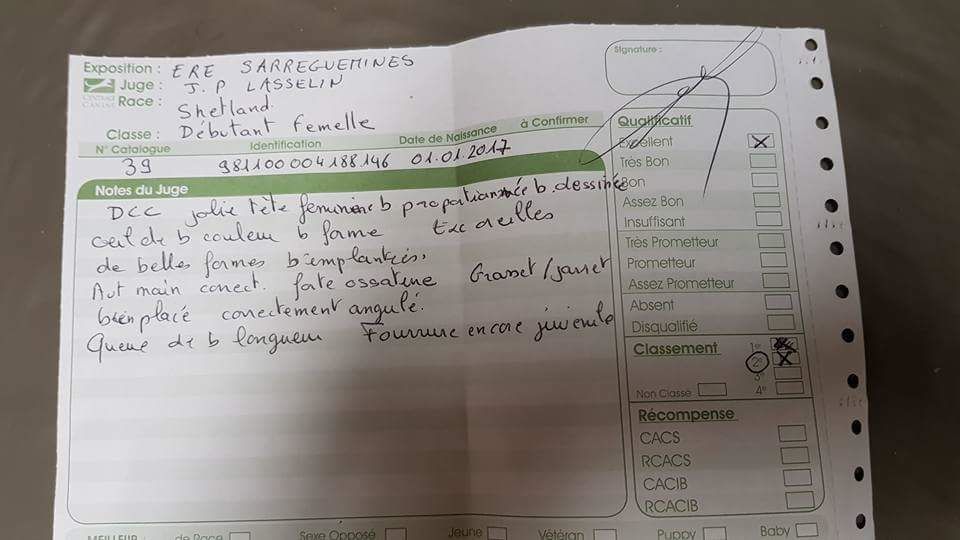 Exposition : ERE SARREGUEMINES
Juge : J. P LASSELIN
CENTRALE CANINE
Race : Shetland
Classe : Débutant Femelle
N° Catalogue Identification Date de Naissance à Confirmer
39 981100004188146 01.01.2017
Notes du Juge
DCC jolie tête feminine b proportionnée b dessinée
oeil de b couleur b forme Exc oreilles
de belles formes b implantées,
Avt main correct. forte ossature Grasset/jarret
bien placé correctement angulé.
Queue de b longueur Fourrure encore juvenile
Signature :
Qualificatif
Excellent X
Très Bon
Bon
Assez Bon
Insuffisant
Très Prometteur
Prometteur
Assez Prometteur
Absent
Disqualifié
Classement
1er
2e X
3e
Non Classé 4e
Récompense
CACS
RCACS
CACIB
RCACIB
MEILLEUR : de Race Sexe Opposé Jeune Vétéran Puppy Baby